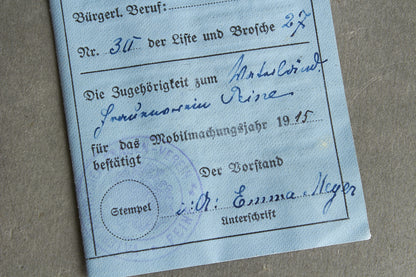 Bürgerl. Beruf:
Nr. 30 der Liste und Brosche 27
Die Zugehörigkeit zum Vaterländ.
Frauenverein Peine
für das Mobilmachungsjahr 1915
bestätigt
Der Vorstand
Stempel
i. A. Emma Meyer
Unterschrift